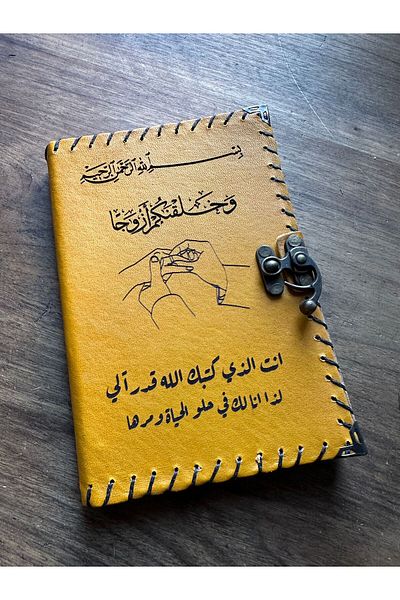 بسم الله الرحمن الرحيم
وَخَلَقْنَاكُمْ أَزْوَاجًا
انت الذي كتبك الله قدر آلي
لذا انا لك في حلو الحياة ومرها